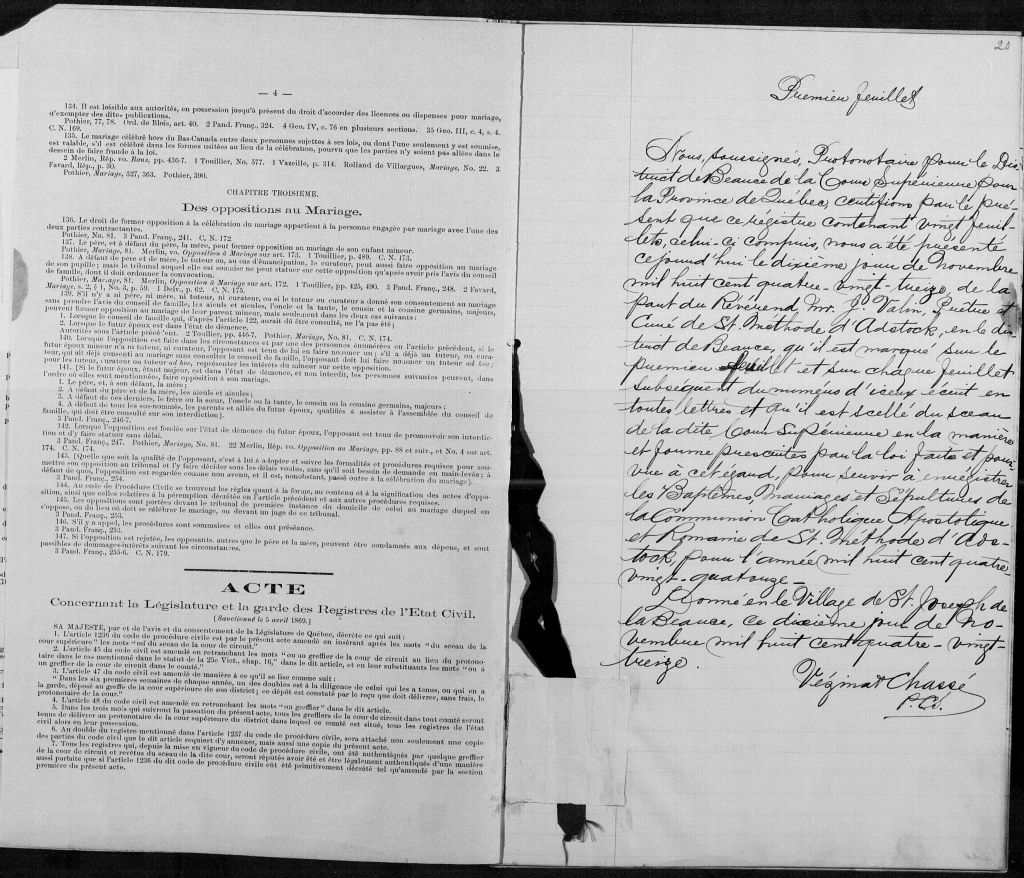 — 4 —
134. Il est loisible aux autorités, en possession jusqu'à présent du droit d'accorder des licences ou dispenses pour mariage,
d'exempter des dites publications.
Pothier, 77, 78. Ord. de Blois, art. 40. 2 Pand. Franç., 324. 4 Geo. IV, c. 76 en plusieurs sections. 35 Geo. III, c. 4, s. 4.
C. N. 169.
135. Le mariage célébré hors du Bas-Canada entre deux personnes sujettes à ses lois, ou dont l'une seulement y est soumise,
est valable, s'il est célébré dans les formes usitées au lieu de la célébration, pourvu que les parties n'y soient pas allées dans le
dessein de faire fraude à la loi.
2 Merlin, Rép. vo. Bans, pp. 436-7. 1 Touillier, No. 577. 1 Vazeille, p. 314. Rolland de Villargues, Mariage, No. 22. 3
Favard, Rép., p. 30.
Pothier, Mariage, 327, 363. Pothier, 390.
CHAPITRE TROISIEME.
Des oppositions au Mariage.
136. Le droit de former opposition à la célébration du mariage appartient à la personne engagée par mariage avec l'une des
deux parties contractantes.
Pothier, No. 81. 3 Pand. Franç., 241. C. N. 172.
137. Le père, et à défaut du père, la mère, peut former opposition au mariage de son enfant mineur.
Pothier, Mariage, 81. Merlin, vo. Opposition à Mariage sur art. 173. 1 Touillier, p. 489. C. N. 173.
138. A défaut de père et de mère, le tuteur ou, au cas d'émancipation, le curateur, peut aussi faire opposition au mariage
de son pupille; mais le tribunal auquel elle est soumise ne peut statuer sur cette opposition qu'après avoir pris l'avis du conseil
de famille, dont il doit ordonner la convocation.
Pothier, Mariage, 81. Merlin, Opposition à Mariage sur art. 172. 1 Touillier, pp. 425, 490. 3 Pand. Franç., 248. 2 Favard,
Mariage, s. 2, § 1, No. 3, p. 59. 1 Delv., p. 62. C. N. 175.
139. S'il n'y a ni père, ni mère, ni tuteur, ni curateur, ou si le tuteur ou curateur a donné son consentement au mariage
sans prendre l'avis du conseil de famille, les aïeuls et aïeules, l'oncle et la tante, le cousin et la cousine germains, majeurs,
peuvent former opposition au mariage de leur parent mineur, mais seulement dans les deux cas suivants:
1. Lorsque le conseil de famille qui, d'après l'article 122, aurait dû être consulté, ne l'a pas été;
2. Lorsque le futur époux est dans l'état de démence.
Autorités sous l'article précédent. 2 Touillier, pp. 446-7. Pothier, Mariage, No. 81. C. N. 174.
140. Lorsque l'opposition est faite dans les circonstances et par une des personnes énumérées en l'article précédent, si le
futur époux mineur n'a ni tuteur, ni curateur, l'opposant est tenu de lui en faire nommer un; s'il a déjà un tuteur, ou curateur,
qui ait déjà consenti au mariage sans consulter le conseil de famille, l'opposant doit lui faire nommer un tuteur ad hoc;
pour les tuteur, curateur ou tuteur ad hoc, représenter les intérêts du mineur sur cette opposition.
141. [Si le futur époux, étant majeur, est dans l'état de démence, et non interdit, les personnes suivantes peuvent, dans
l'ordre où elles sont mentionnées, faire opposition à son mariage.
1. Le père, et, à son défaut, la mère;
2. A défaut du père et de la mère, les aïeuls et aïeules;
3. A défaut de ces derniers, le frère ou la sœur, l'oncle ou la tante, le cousin ou la cousine germains, majeurs;
4. A défaut de tous les sus-nommés, les parents et alliés du futur époux, qualifiés à assister à l'assemblée du conseil de
famille, qui doit être consulté sur son interdiction].
3 Pand. Franç., 246-7.
142. Lorsque l'opposition est fondée sur l'état de démence du futur époux, l'opposant est tenu de promouvoir son interdiction
et d'y faire statuer sans délai.
3 Pand. Franç., 247. Pothier, Mariage, No. 81. 22 Merlin, Rép. vo. Opposition au Mariage, pp. 88 et suiv., et No. 4 sur art.
174. C. N. 174.
143. [Quelle que soit la qualité de l'opposant, c'est à lui à adopter et suivre les formalités et procédures requises pour soumettre
son opposition au tribunal et l'y faire décider sous les délais voulus, sans qu'il soit besoin de demande en main-levée; à
défaut de quoi, l'opposition est regardée comme non avenue, et il est, nonobstant, passé outre à la célébration du mariage].
3 Pand. Franç., 254.
144. Au code de Procédure Civile se trouvent les règles quant à la forme, au contenu et à la signification des actes d'opposition,
ainsi que celles relatives à la péremption décrétée en l'article précédent et aux autres procédures requises.
145. Les oppositions sont portées devant le tribunal de première instance du domicile de celui au mariage duquel on
s'oppose, ou du lieu où doit se célébrer le mariage, ou devant un juge de ce tribunal.
3 Pand. Franç., 253.
146. S'il y a appel, les procédures sont sommaires et elles ont préséance.
3 Pand. Franç., 253.
147. Si l'opposition est rejetée, les opposants, autres que le père et la mère, peuvent être condamnés aux dépens, et sont
passibles de dommages-intérêts suivant les circonstances.
3 Pand. Franç., 255-6. C. N. 179.
ACTE
Concernant la Législature et la garde des Registres de l'Etat Civil.
[Sanctionné le 5 avril 1869.]
SA MAJESTÉ, par et de l'avis et du consentement de la Législature de Québec, décrète ce qui suit:
1. L'article 1236 du code de procédure civile est par le présent acte amendé en insérant après les mots "du sceau de la
cour supérieure" les mots "où du sceau de la cour de circuit."
2. L'article 45 du code civil est amendé en retranchant les mots "ou au greffier de la cour de circuit au lieu du protonotaire
dans le cas mentionné dans le statut de la 25e Vict., chap. 16," dans le dit article, et en leur substituants les mots "ou à
un greffier de la cour de circuit dans le comté."
3. L'article 47 du code civil est amendé de manière à ce qu'il se lise comme suit:
"Dans les six premières semaines de chaque année, un des doubles est à la diligence de celui qui les a tenus, ou qui en a
la garde, déposé au greffe de la cour supérieure de son district; ce dépôt est constaté par le reçu que doit délivrer, sans frais, le
protonotaire de la cour."
4. L'article 48 du code civil est amendé en retranchant les mots "ou greffier" dans le dit article.
5. Dans les trois mois qui suivront la passation du présent acte, tous les greffiers de la cour de circuit dans tout comté seront
tenus de délivrer au protonotaire de la cour supérieure du district dans lequel ce comté est situé, tous les registres de l'état
civil alors en leur possession.
6. Au double du registre mentionné dans l'article 1237 du code de procédure civile, sera attaché non seulement une copie
des parties du code civil que le dit article requiert d'y annexer, mais aussi une copie du présent acte.
7. Tous les registres qui, depuis la mise en vigueur du code de procédure civile, ont été authentiqués par quelque greffier
de la cour de circuit et revêtus du sceau de la dite cour, seront réputés avoir été et être légalement authentiqués d'une manière
aussi parfaite que si l'article 1236 du dit code de procédure civile eût été primitivement décrété tel qu'amendé par la section
première du présent acte.
20
Premier feuillet
Nous, soussignés, Protonotaire pour le Dis-
trict de Beauce de la Cour Supérieure pour
la Province de Québec, certifions par le pré-
sent que ce régistre contenant vingt feuil-
lets, celui-ci compris, nous a été présenté
ce jourd'hui le dixième jour de Novembre
mil huit cent quatre-vingt-treize, de la
part du Révérend Mr. J. Valin, Prêtre et
Curé de St. Méthode d'Adstock, en le dis-
trict de Beauce, qu'il est marqué sur le
premier feuillet et sur chaque feuillet
subséquent du numéro d'iceux écrit en
toutes lettres et qu'il est scellé du sceau
de la dite Cour Supérieure en la manière
et forme prescrites par la loi faite et pour-
vue à cet égard, pour servir à enregistrer
les Baptêmes, Mariages et Sépultures de
la Communion Catholique Apostolique
et Romaine de St. Méthode d'Ads-
tock, pour l'année mil huit cent quatre-
vingt-quatorze-
Donné en le Village de St. Joseph de
la Beauce, ce dixième jour de No-
vembre mil huit cent quatre-vingt-
treize.
Vézina & Chassé
P.C.S.